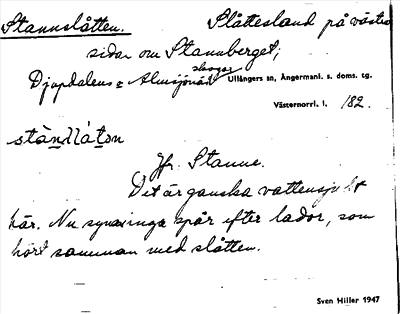 Stannslåtten. Slåttesland på västra
sidan om Stannberget;
skogar
Djupdalens o Almsjönäs Ullångers sn, Ångermanl. s. doms. tg.
Västernorrl. l. 182.
stànnlátɔn
Jfr. Stanne.
Det är ganska vattensjukt
här. Nu syns inga spår efter lador, som
hört samman med slåtten.
Sven Hiller 1947